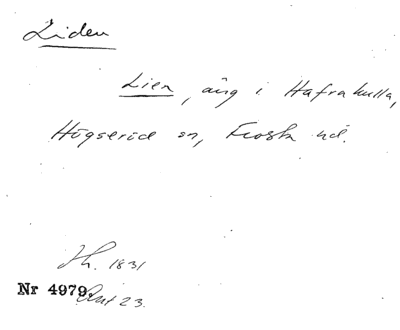 Liden
Lien, äng i Hafrakulla,
Högseröd sn, Frosta hd.
Jh. 1831
Nr 4979. Ant 23.